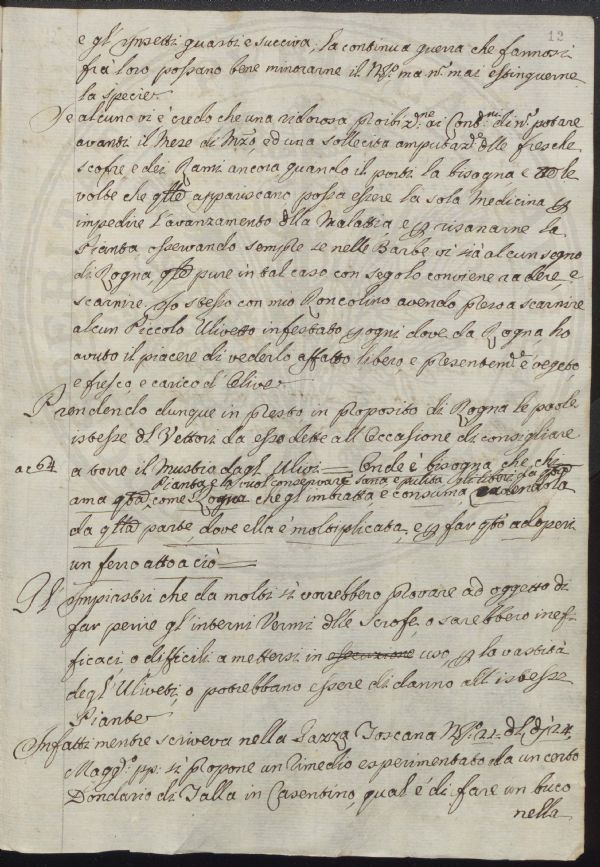 12
e gl'Insetti guasti e succiva; la continua guerra che fannosi
frà loro possano bene minorarne il N.º ma n.º mai estinguerne
la specie
Se alcuno vi è credo che una ridorosa proibiz.ne ai Cont.ni di n.º potare
avanti il Mese di Mzo, ed una sollecita amputaz.e dlle fresche
scofre e dei Rami ancora quando il porti la bisogna e le
volte che qlle appariscano possa essere la sola Medicina p
impedire l'avanzamento dlla Malattia, e p risanarne la
Pianta osservando sempre se nelle Barbe vi sià alcun segno
di Rogna, qta pure in tal caso con segolo conviene radere, e
scarnire. Io stesso con mio Roncolino avendo preso a scarnire
alcun Piccolo Ulivetto infestato p ogni dove da Rogna, ho
avuto il piacere di vederlo affatto libero, e presentem.e è vegeto,
e fresco, e carico d'Olive
Prendendo dunque in presto in proposito di Rogna le parole
istesse dl Vettori da esso dette all'Occasione di consigliare
ac 64 a torre il Mustio dagl'Ulivi = Onde è bisogna che chi
Pianta e la vuol conservare sana e pulita gli lievi da
ama qta come Rogna che gl'imbratta e consuma, radendola
da qlla parte, dove ella è moltiplicata, e p far qto adoperi
un ferro atto a ciò =
Gl'Impiastri che da molti si vorrebbero provare ad oggetto di
far perire gl'interni Vermi dlle Scrofe, o sarebbero inef-
ficaci, o difficili a mettersi in esecuzione uso, p la vastità
degl'Uliveti, o potrebbano essere di danno all'istesse
Piante
Infatti mentre scriveva nella Gazza Toscana N.º 21. dl dì 24.
Magg.º pp. si propone un Rimedio esperimentato da un certo
Dondario di Talla in Casentino, qual'é di fare un buco
nella